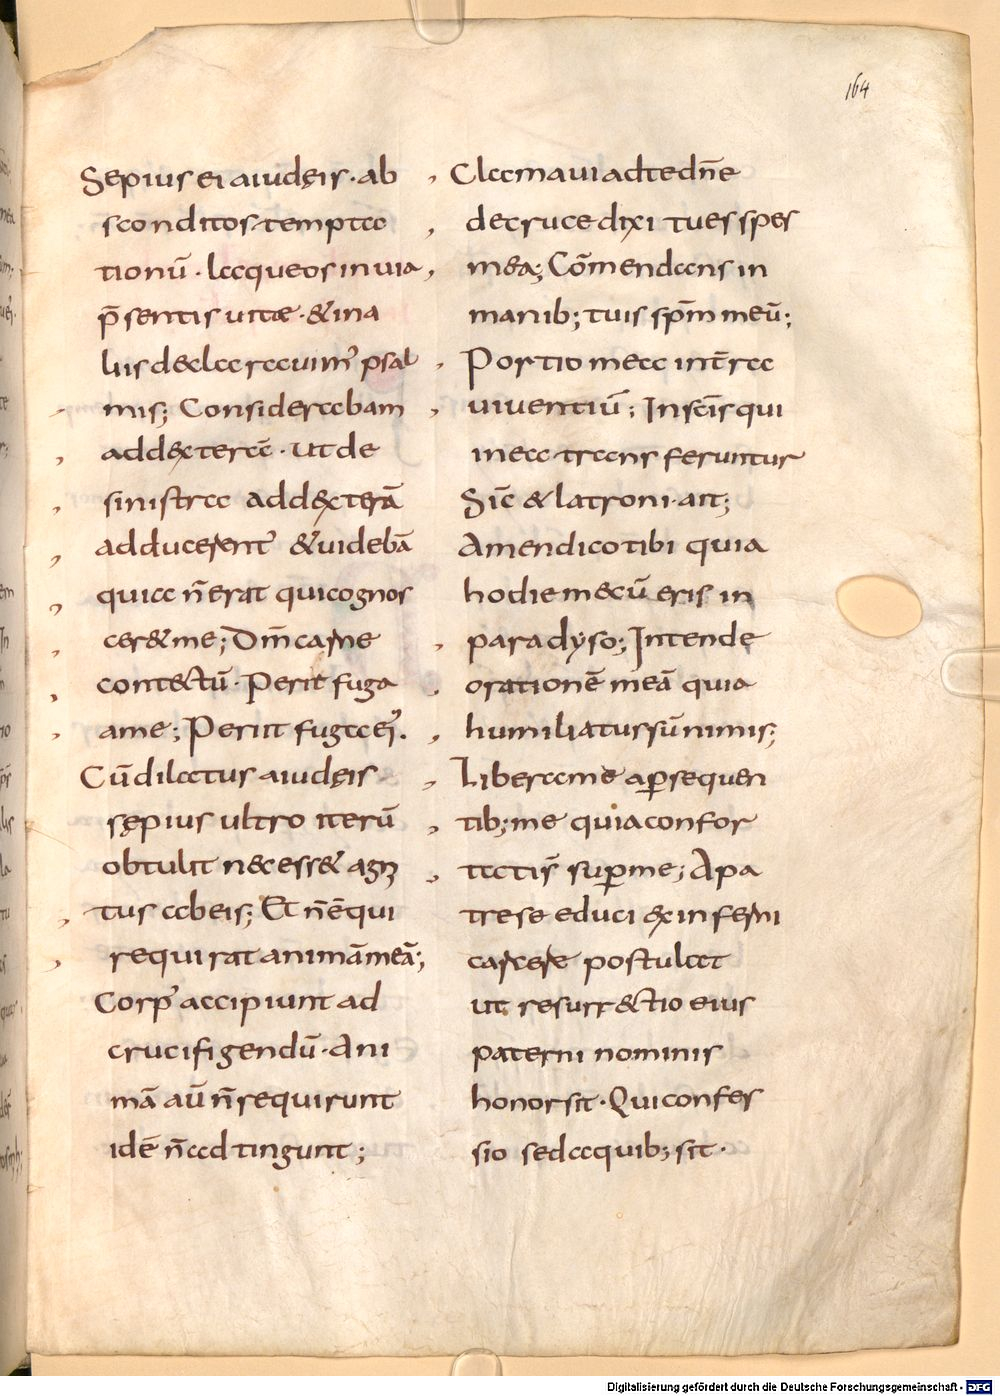 164
Sepius ei aiudęis · ab
sconditos temptа
tionū · laqueos in uia
p̄sentis uitæ · & in a
liis d&clarauim᾽ psal
mis; Considerabam
ad d&xterā · ut de
sinistra ad d&xterā
adducerent᾽ & uidebā
quia n̄ erat qui cognos
cer& me; Dn̄i carne
cont&ctū · Periit fuga
a me; Periit fuga ei᾽.
Cū dilatus a iudęis
sępius ultro iterū
obtulit n&cess& agn
tus abeis; Et n̄ ē qui
requirat animā meā;
Corp᾽ accipiunt ad
crucifigendū · Ani
mā aū n̄ requirunt
idē n̄ adtingunt;
Clamaui ad te dn̄e
de cruce dixi tu es spes
mea; Cōmendans in
manib; tuis sp̄m meū;
Portio mea in t̄ra
uiuentiū; In sc̄is qui
in ea transferuntur
Sic̄ & latroni · ait;
Amen dico tibi quia
hodie mecū eris in
paradyso; Intende
orationē meā quia
humiliatus sū nimis;
Libera me a p̱sequen
tib; me quia confor
tatis᾽ sup̱ me; A pa
tre se educi &x inferni
carcere postulat
ut resurr&ctio eius
paterni nominis
honor sit · Qui confes
sio sed aquib; sit ·
Digitalisierung gefördert durch die Deutsche Forschungsgemeinschaft - DFG